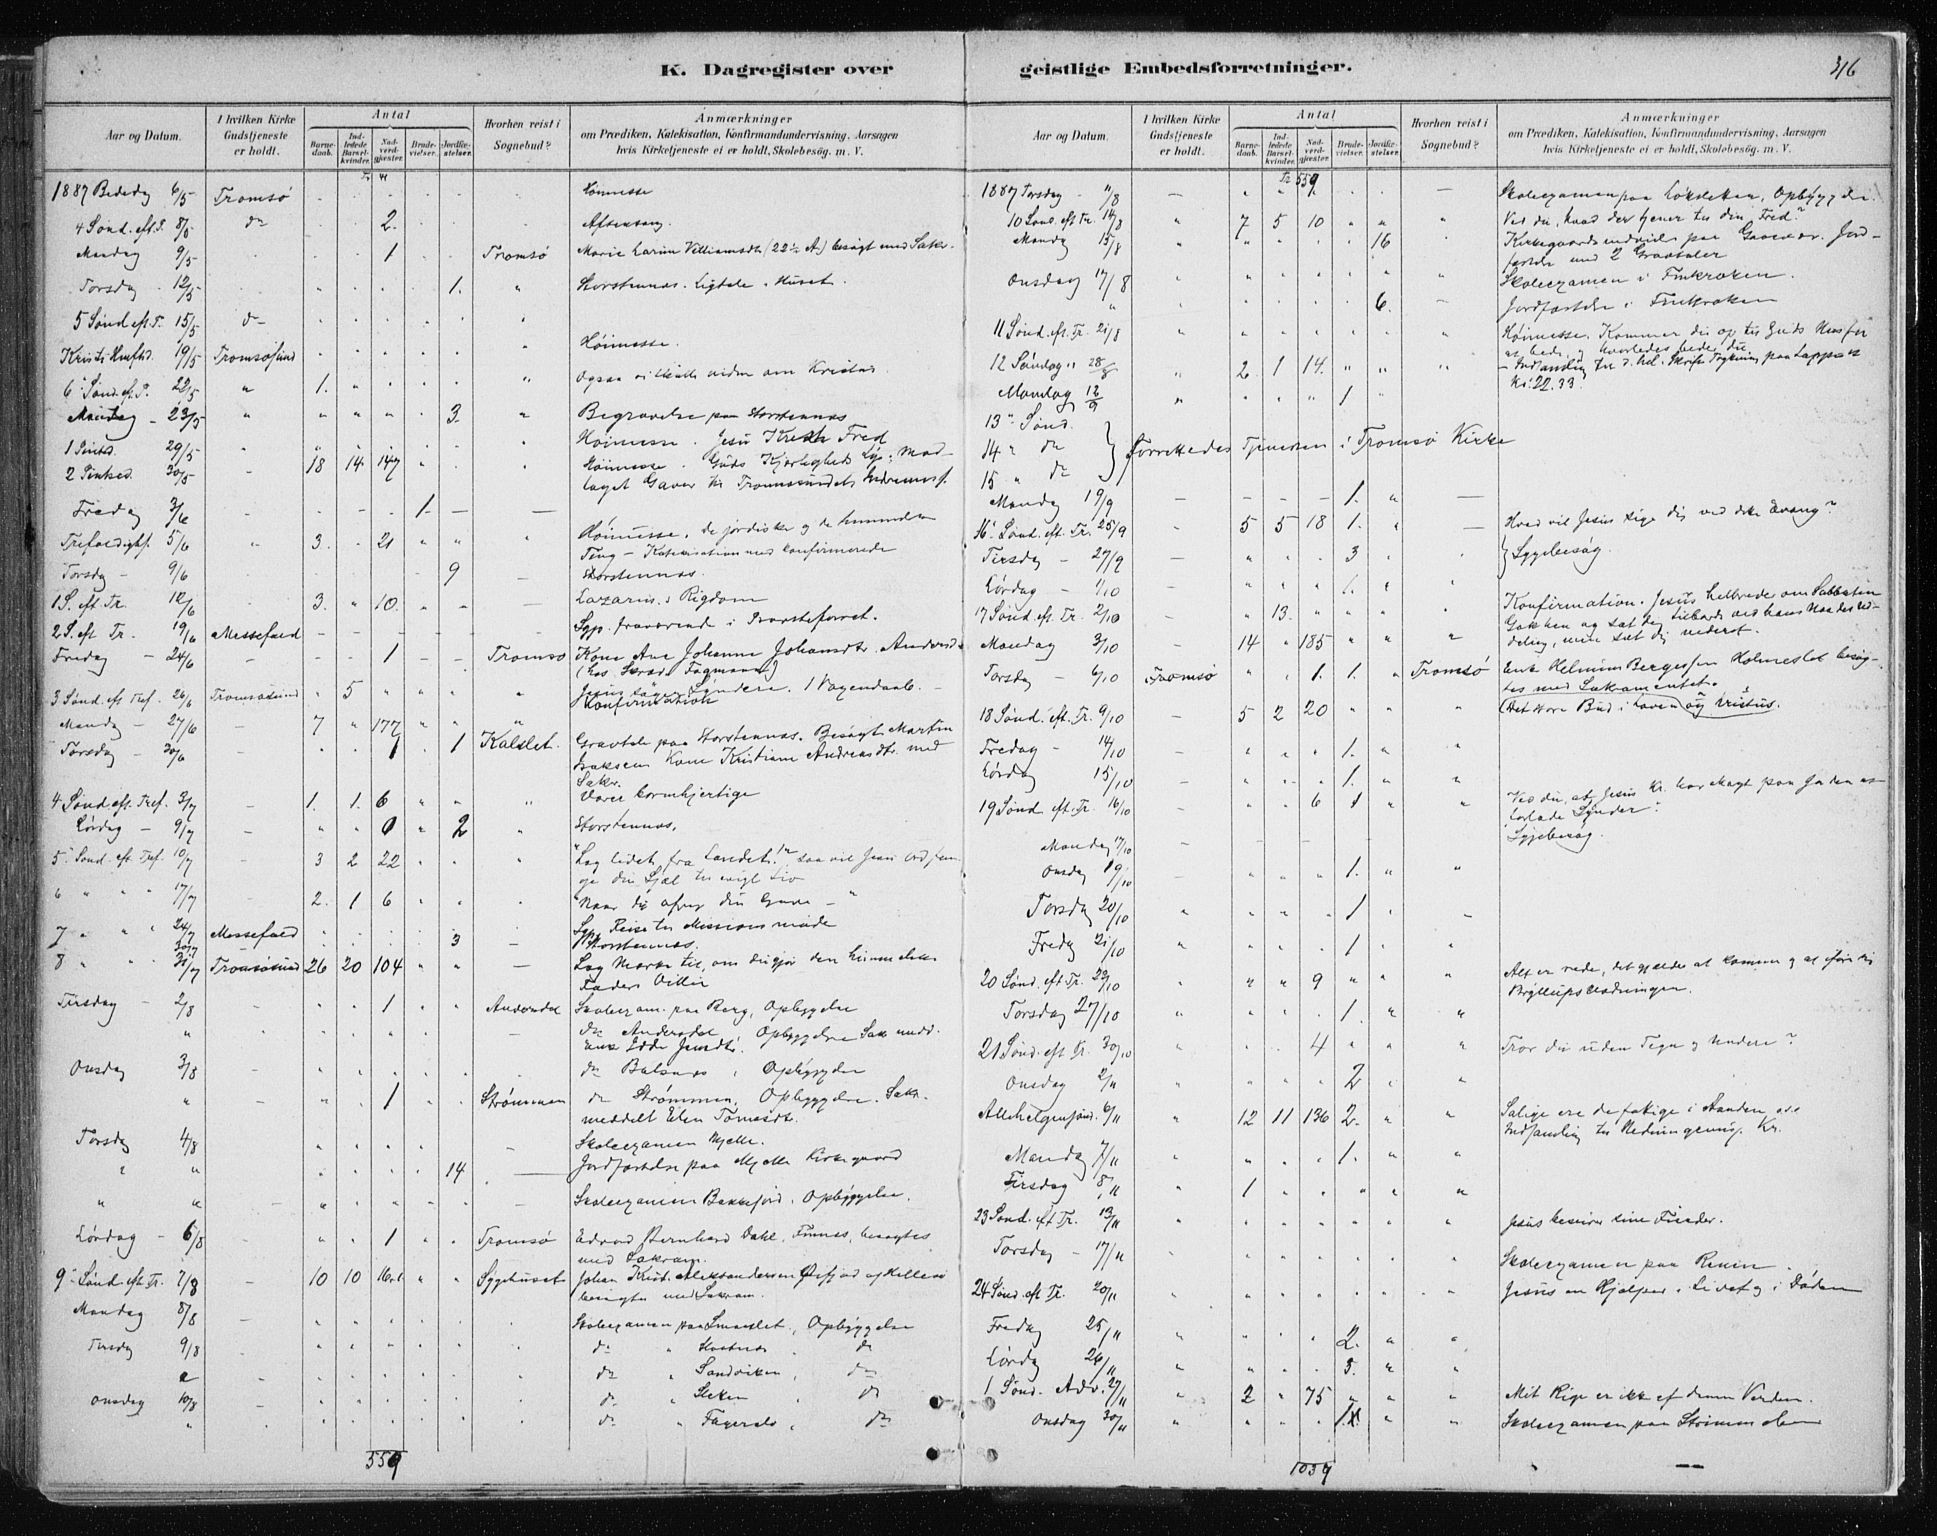 K. Dagregister over geistlige Embedsforretninger.
316
Aar og Datum.
I hvilken Kirke Gudstjeneste er holdt.
Antal
Barnedaab.
Indledede Barselkvinder.
Nadverdgjester.
Brudevielser.
Jordfæstelser.
Hvorhen reist i Sognebud?
Anmærkninger
om Prædiken, Katekisation, Konfirmandundervisning, Aarsagen
hvis Kirketjeneste ei er holdt, Skolebesøg. m. V.
1887 Bededag 6/5 Tromsø Høimesse
4 Sønd. eft. P. 8/5 do 2. Aftensang.
Mandag 9/5 1 Tromsø Marie besøgt med Sakr.
Torsdag 12/5 1. Storstennes. Ligtale i Huset.
5 Sønd eft. P. 15/5 do
Kristi Himfd. 19/5 Tromsøsund Høimesse.
6 Sønd. eft. P. 22/5 1. Ogsaa vi skulle vidne om Kristus.
Mandag - 23/5 3. Begravelse paa Storstennes
1 Pintsd. 29/5 Høimesse. Jesu Kristi Fred
2 Pintsed. 30/5 18 14 147 Høimesse. Guds Kjærligheds
taget Gaver til Tromsøsundets Indremisf.
Fredag 3/6 1.
Trefoldighf. 5/6 3. 21 Høimesse, de jordiske og de himmelske
Ting - Katekisation med konfirmerede
Torsdag - 9/6 9 Storstennes.
1 S. eft. Tr. 12/6 3. 10. Lazarus's Rigdom
2 S. eft Tr. 19/6 Messefald Sgp. fraværende i Provsteforret.
Fredag - 24/6 1 Tromsø Kone Ane Johanne Johansdtr.
3 Sønd eft Tref. 26/6 Tromsøsund 5 Jesus Syndere. 1 Voxendaab.
Konfirmation
Mandag - 27/6 7 177
Torsdag - 30/6 1 1 Kalslet. Gravtale paa Storstennes. Besøgt Martin
Isaksens Kone Kristiane Andreasdtr. med
Sakr.
4 Sønd. eft. Tref. 3/7 1. 1. 6 Værer barmhjertige
Lørdag - 9/7 0 2 Storstennes.
5 Sønd. eft. Tref. 10/7 3 2 22 "Læg lidet fra Landet!" saa vil Jesu Ord
din Sjæl til evigt Liv
6 17/7 2. 1 6 "Naar du ofrer din Gave - "
7 24/7 Messefald Sgp. Reise til Missionsmøde
30/7 3 Storstennes.
8 31/7 Tromsøsund 26 20 104 Læg Mærke til, om du gjør den himmelske
Faders Villie
Tirsdag - 2/8 1 Andersdal Skoleexam. paa Berg, Opbyggelse
do Andersdal, Opbyggelse Sak medd.
Onsdag 3/8 do Balsnes, Opbyggelse
1 Strømmen do Strømmen, Opbyggelse. Sakr.
meddelt Elen Tomasdtr.
Torsdag 4/8 Skoleexamen Mjelle.
14 Jordfæstelse paa Mjelle Kirkegaard
Skoleexamen Bakkefjord. Opbyggelse.
Lørdag - 6/8 1 Tromsø Edvard Bernhard Dahl, Finnes, besøgtes
med Sakram.
9 Sønd. eft. Tr. 7/8 10 10 Sygehuset Johan Krist. Aleksandersen
besøgtes med Sakram.
Mandag 8/8 Skoleexamen paa Opbyggelse
Tirsdag 9/8 do do
do Sandviken, do
Onsdag 10/8 do do
do do
559
1887 Torsdag - 11/8 Skoleexamen paa Opbyggelse.
Tr. 559
10 Sønd. eft Tr. 14/8 7 5 10 Ved du, hvad der tjener til din Fred?
Mandag 15/8 16 Kirkegaardsindvielse paa Jord-
fæstelse med 2 Gravtaler
Onsdag 17/8 Skoleexamen i Finkroken.
6. Jordfæstelse i Finkroken
11 Sønd. eft. Tr. 21/8 Høimesse. Kommer du op til Guds Hus for
at bede, og hvorledes beder du
12 Søndag 28/8 2. 1 14. - Indsamling til d. hel. Skrifts Trykning paa Lappisk
Kr. 22.33.
Mandag 12/9 1
13 Sønd.
14 do
15 do
Forrettedes Tjenesten i Tromsø Kirke
Mandag 19/9 1.
16 Sønd. eft. Tr. 25/9 5 5 18 1. Hvad vil Jesus sige dig ved dette Evang?
Tirsdag - 27/9 3 Sygebesøg.
Lørdag - 1/10 1.
17 Sønd eft Tr. 2/10 13. Konfirmation. Jesus helbreder om Sabbaten
Mandag 3/10 14 185
Torsdag - 6/10 Tromsø 1. 1. Tromsø Enke Helmine Holmeslet besøg-
tes med Sakramentet.
18 Sønd. eft. Tr. 9/10 5 2 20 (Det store Bud i Loven og Kristus.
Fredag - 14/10 1.
Lørdag 15/10 1.
19 Sønd eft. Tr. 16/10 6 1 Ved du, at Jesus Kr. har Magt paa Jorden at
forlade Synder?
Mandag 17/10 Sygebesøg.
Onsdag 19/10 1.
Torsdag 20/10 1
Fredag 21/10 1
20 Sønd eft. Tr. 23/10 9 Alt er rede, det gjælder at komme og at iføre sig
Bryllupsklædningen.
Torsdag 27/10 1.
21 Sønd. eft Tr. 30/10 4 Tror du uden Tegn og Undere?
Onsdag 2/11 2
Allehelgensønd. 6/11 12 11 136 2. Salige ere de fattige i Aanden, osv
Mandag 7/11 1.
Tirsdag 8/11 1
23 Sønd. eft Tr. 13/11 Jesus beseirer sine Fiender.
Torsdag - 17/11 Skoleexamen paa
24 Sønd. eft Tr. 20/11 Jesus en Hjælper i Livet og i Døden
Fredag 25/11 2.
Lørdag 26/11 5.
1 Sønd. Adv. 27/11 2 75 Mit Rige er ikke af denne Verden.
Onsdag 30/11 1. Skoleexamen paa
1039